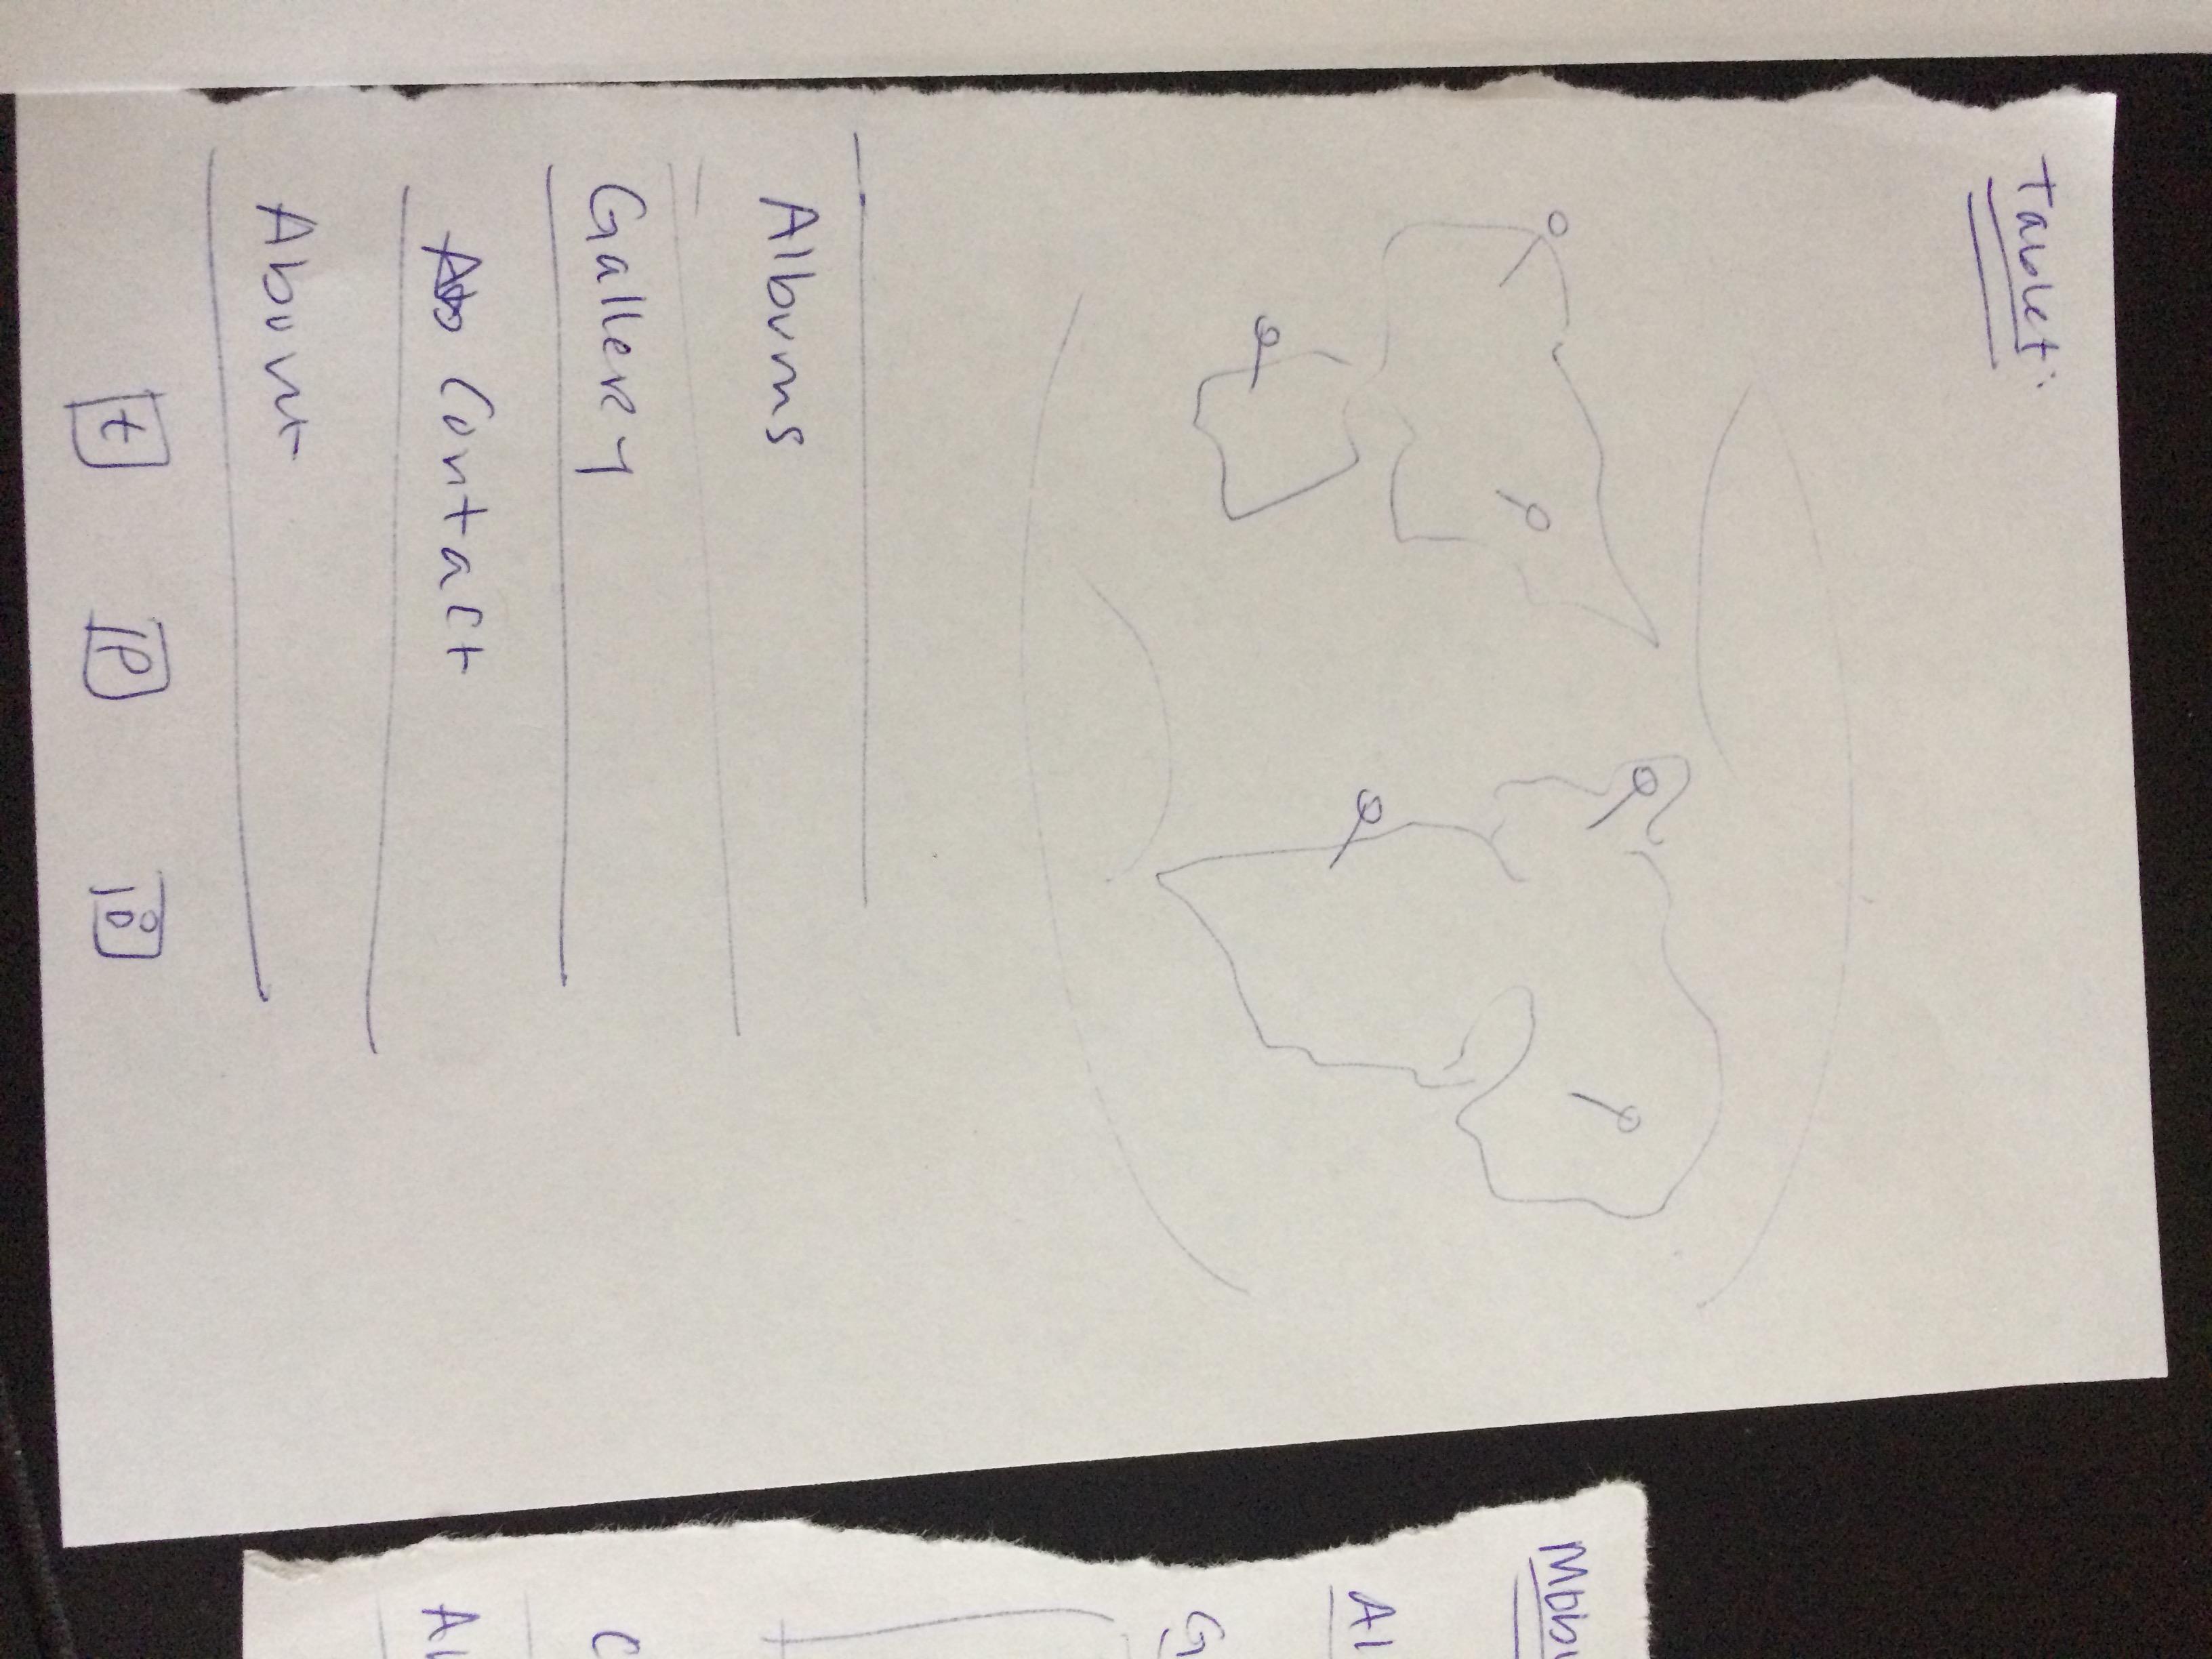 Tablet:
Albums
Gallery
Contact
About
t
P
Al
G
C